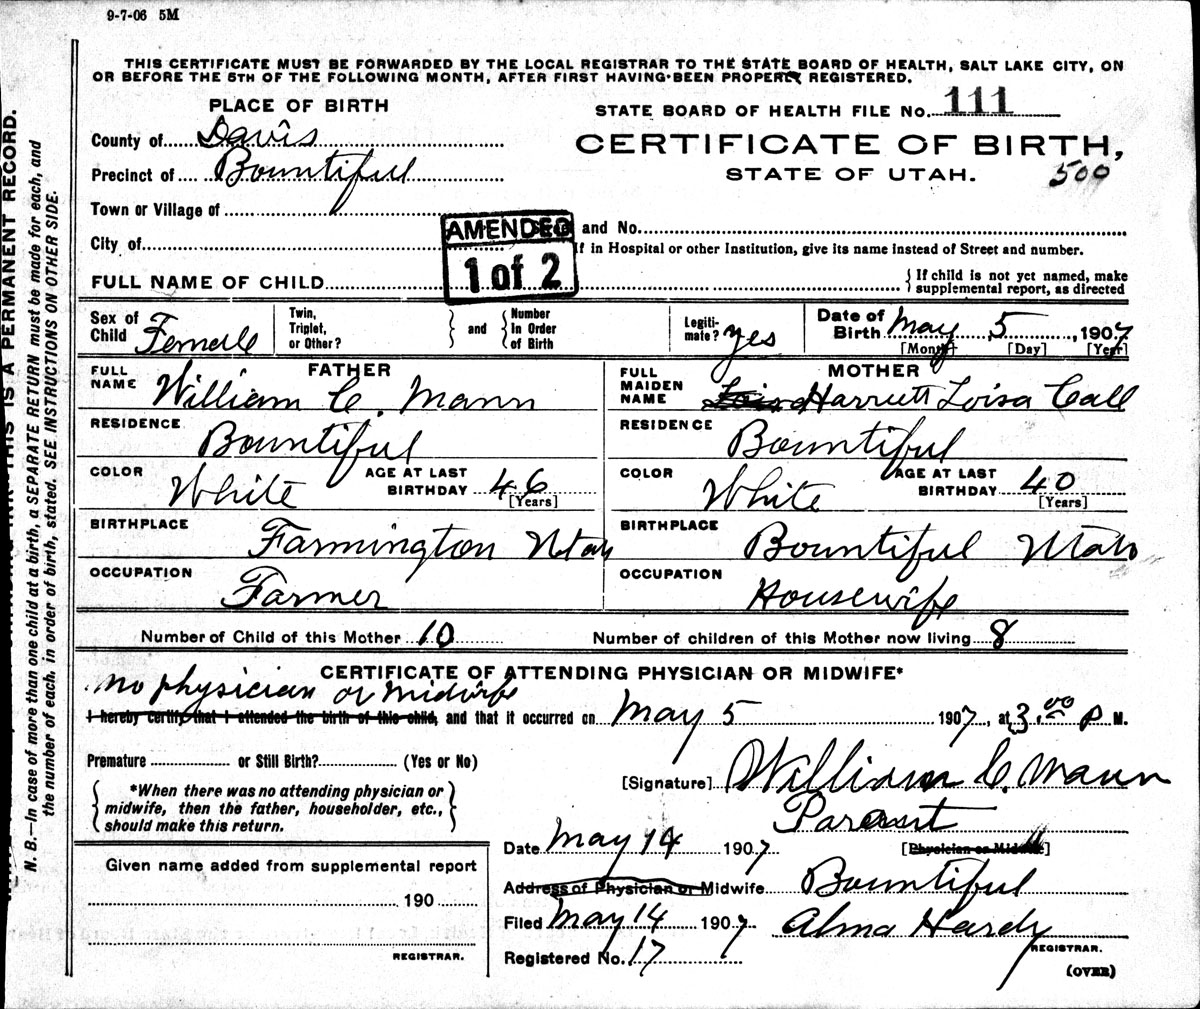 9-7-06 5M
THIS CERTIFICATE MUST BE FORWARDED BY THE LOCAL REGISTRAR TO THE STATE BOARD OF HEALTH, SALT LAKE CITY, ON
OR BEFORE THE 5TH OF THE FOLLOWING MONTH, AFTER FIRST HAVING BEEN PROPERLY REGISTERED.
PLACE OF BIRTH
STATE BOARD OF HEALTH FILE No. 111
County of Davis
CERTIFICATE OF BIRTH,
Precinct of Bountiful
STATE OF UTAH. 500
Town or Village of
AMENDED
1 of 2
and No.
City of
If in Hospital or other Institution, give its name instead of Street and number.
FULL NAME OF CHILD
{ If child is not yet named, make
supplemental report, as directed
Sex of Child Female
Twin, Triplet, or Other? } and { Number In Order of Birth
Legiti- mate? yes
Date of Birth May 5, 1907
[Month] [Day] [Year]
FATHER
FULL NAME William C. Mann
RESIDENCE Bountiful
COLOR White AGE AT LAST BIRTHDAY 46 [Years]
BIRTHPLACE Farmington Utah
OCCUPATION Farmer
MOTHER
FULL MAIDEN NAME Harriett Loisa Call
RESIDENCE Bountiful
COLOR White AGE AT LAST BIRTHDAY 40 [Years]
BIRTHPLACE Bountiful Utah
OCCUPATION Housewife
Number of Child of this Mother 10 Number of children of this Mother now living 8
CERTIFICATE OF ATTENDING PHYSICIAN OR MIDWIFE*
no physician or Midwife
I hereby certify that I attended the birth of this child, and that it occurred on May 5 1907, at 3.00 P M.
Premature or Still Birth? (Yes or No)
{ *When there was no attending physician or
midwife, then the father, householder, etc.,
should make this return. }
[Signature] William C. Mann
Parent
Date May 14 1907 [Physician or Midwife]
Address of Physician or Midwife Bountiful
Filed May 14 1907 Alma Hardy
REGISTRAR.
Registered No. 17
(OVER)
Given name added from supplemental report
190
REGISTRAR.
THIS IS A PERMANENT RECORD.
N. B.—In case of more than one child at a birth, a SEPARATE RETURN must be made for each, and
the number of each, in order of birth, stated. SEE INSTRUCTIONS ON OTHER SIDE.